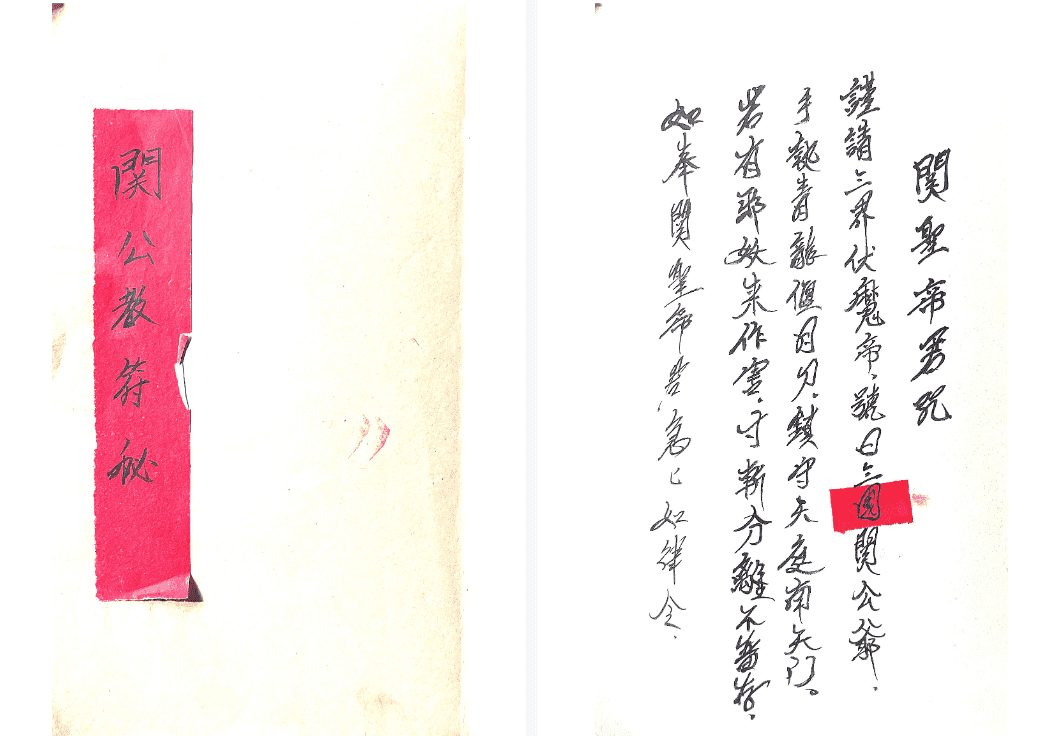 関公教符秘
関聖帝君咒
謹請三界伏魔帝號曰三國関公爺
手執青龍偃月刀鎮守天庭南天門
若有邪妖来作害寸斬分離不留存
如奉関聖帝君急匕如律令